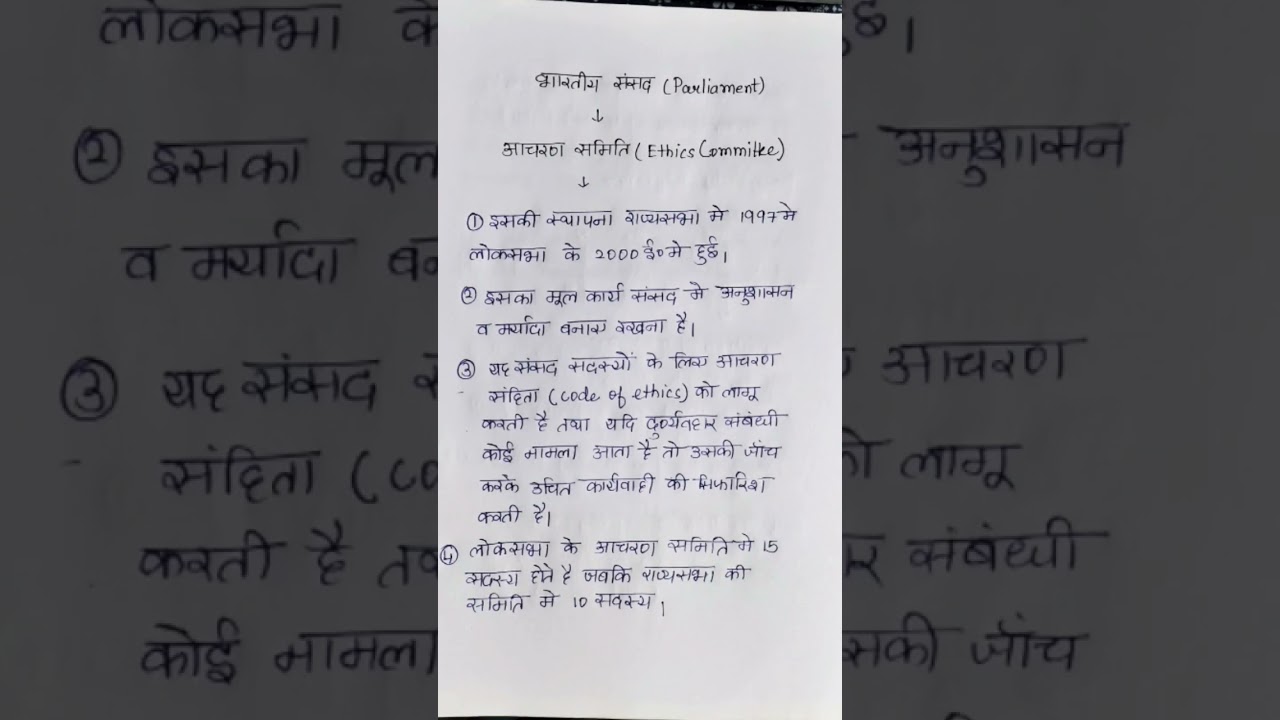 भारतीय संसद (Parliament)
↓
आचरण समिति (Ethics Committee)
↓
① इसकी स्थापना राज्यसभा मे 1997 मे
लोकसभा के 2000 ई० मे हुई।
② इसका मूल कार्य संसद मे अनुशासन
व मर्यादा बनाए रखना है।
③ यह संसद सदस्यों के लिए आचरण
संहिता (code of ethics) को लागू
करती है तथा यदि दुर्व्यवहार संबंधी
कोई मामला आता है तो उसकी जाँच
करके उचित कार्यवाही की सिफारिश
करती है।
④ लोकसभा के आचरण समिति मे 15
सदस्य होते है जबकि राज्यसभा की
समिति मे 10 सदस्य।